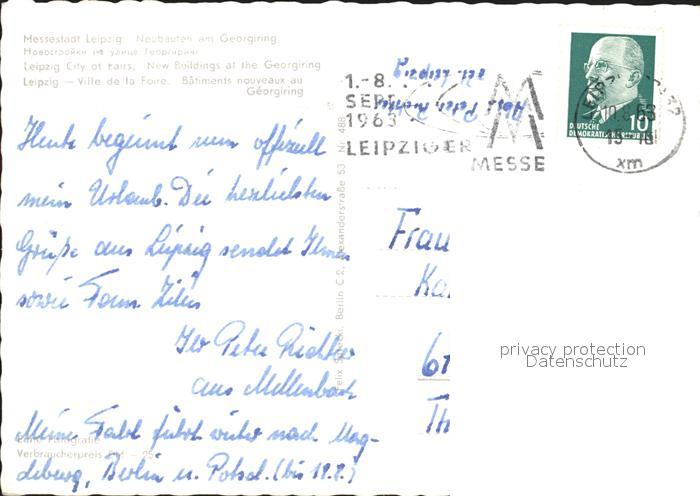 Messestadt Leipzig. Neubauten am Georgiring
Новостройки на улице Георгиринг
Leipzig City of Fairs, New Buildings at the Georgiring
Leipzig — Ville de la Foire. Bâtiments nouveaux au
Géorgiring
1.-8.
SEPT.
1963
LEIPZIGER
MESSE
DEUTSCHE
DEMOKRATISCHE REPUBLIK
10
xm
Heute beginnt nun offiziell
mein Urlaub. Die herzlichsten
Grüße aus Leipzig sendet Ihnen
sowie Fam.
Ihr Peter Richter
aus Mellenbach
Meine Fahrt führt weiter nach Mag-
deburg, Berlin u. Potsd. (bis 18.8.)
Verbraucherpreis DM - 25
Berlin C 2, Alexanderstraße 53 Nr. 488
z.Zt. Leipzig
Frau
Ka
Th
privacy protection
Datenschutz